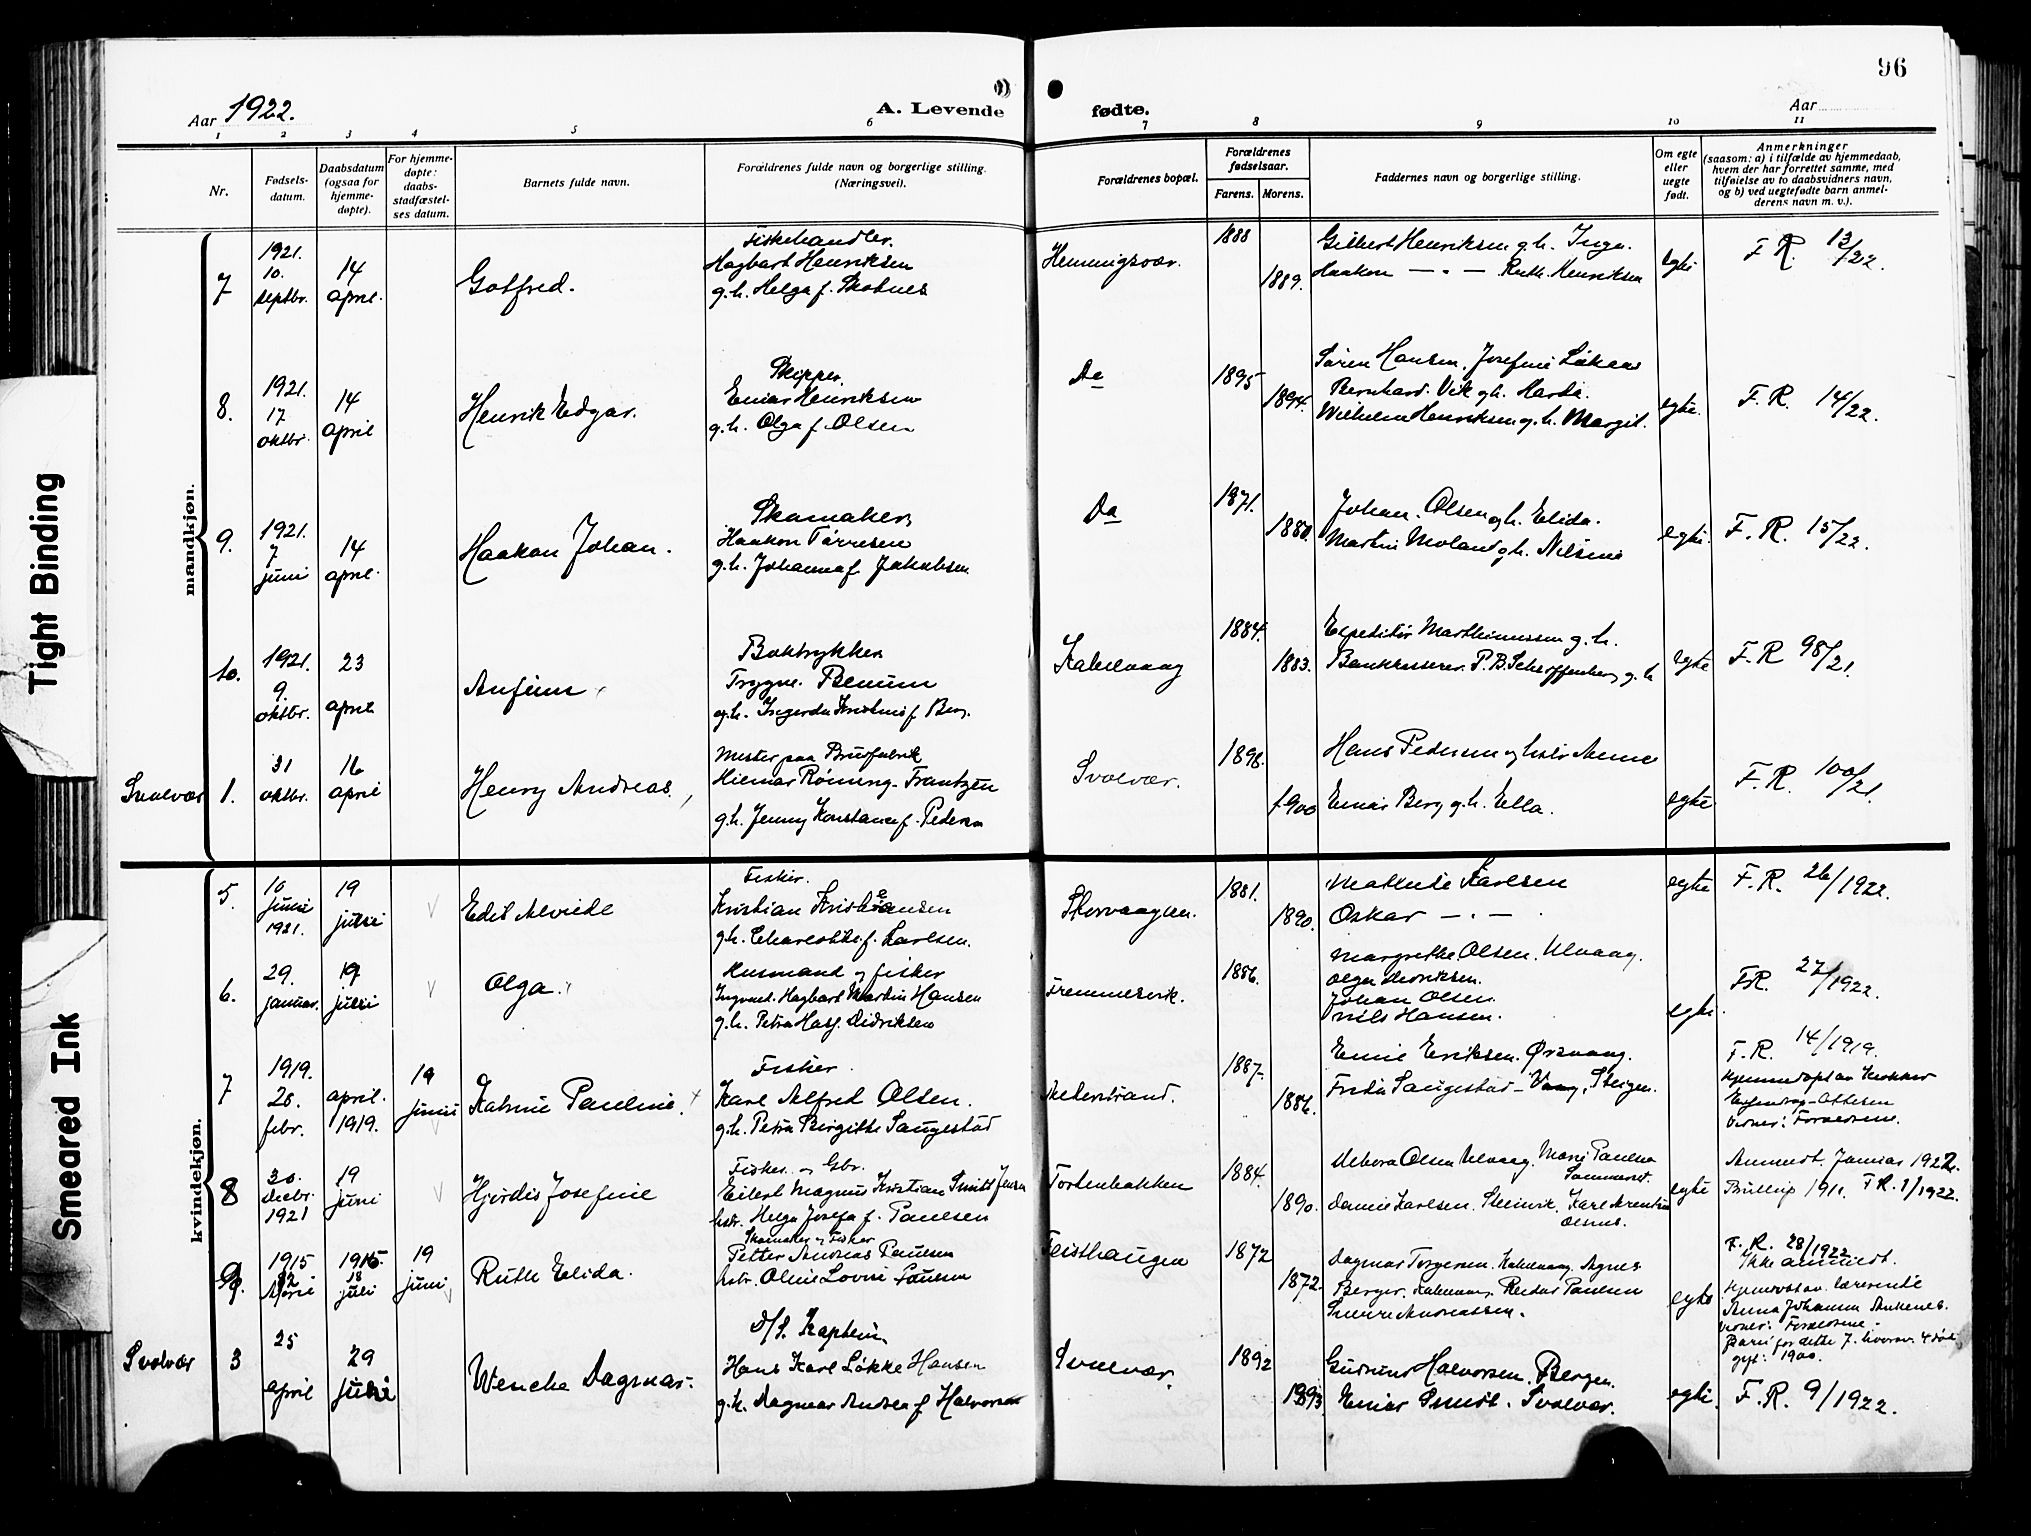 96
Aar 1922.
A. Levende
fødte.
Aar
1 2 3 4 5 6 7 8 9 10 11
Nr.
Fødsels-
datum.
Daabsdatum
(ogsaa for
hjemme-
døpte).
For hjemme-
døpte:
daabs-
stadfæstel-
ses datum.
Barnets fulde navn.
Forældrenes fulde navn og borgerlige stilling.
(Næringsvei).
Forældrenes bopæl.
Forældrenes
fødselsaar.
Farens. Morens.
Faddernes navn og borgerlige stilling.
Om egte
eller
uegte
født.
Anmerkninger
(saasom: a) i tilfælde av hjemmedaab,
hvem der har forrettet samme, med
tilføielse av to daabsvidners navn,
og b) ved uegtefødte barn anmel-
derens navn m. v.).
mandkjøn.
7
1921.
10.
septbr.
14
april.
Gotfred.
Fiskehandler.
Hagbart Henriksen
g.h. Helga f. Skotnes
Henningsvær.
1888
1889.
Gilbert Henriksen g.h. Inga.
Haakon — " — Ruth Henriksen
egte
F R. 13/22.
8.
1921.
17
oktbr.
14
april
Henrik Edgar.
Skipper.
Einar Henriksen
g.h. Olga f. Olsen
Do
1895
1894.
Søren Hansen, Josefine Løkaas
Bernhard Vik g.h. Harda.
Wilhelm Henriksen g.h. Margit.
egte.
F. R. 14/22.
9.
1921.
7
juni
14
april.
Haakon Johan.
Skomaker
Haakon Tørresen
g.h. Johanna f. Jakobsen
Do
1871.
1880.
Johan Olsen g.h. Elida.
Martin Moland g.h. Nilsine
egte.
F. R. 15/22.
10.
1921.
9.
oktbr.
23
april
Anfinn
Boktrykker
Trygve Benum
g.h. Ingerda Kristine f. Berg.
Kabelvaag
1884.
1883.
Expeditør Marthinussen g.h.
Bankkasserer P. B. Scheffenberg g.h
egte
F. R 98/21.
Svolvær
1.
31
oktbr.
16
april
Henry Andreas
Mester paa Brusfabrik
Hilmar Rønning-Frantzen
g.h. Jenny Konstance f. Pedersen
Svolvær.
1898.
1900
Hans Pedersen og hstr Anne
Einar Berg g.h. Ella.
egte
F. R. 100/21.
kvindekjøn.
5.
10
juni
1921.
19
juli
Edit Alvilde
Fisker.
Kristian Kristiansen
g.h. Charlotte f. Karlsen.
Storvaagen.
1881.
1890.
Mathilde Karlsen
Oskar — " —
egte
F. R. 26/1922.
6.
29.
januar.
19
juli
Olga
Husmand og fisker
Ingvart Hagbart Martin Hansen
g.h. Petra Has f. Didriksen
Fremmervik.
1886.
Margrethe Olsen. Ulvaag.
Olga Henriksen.
Johan Olsen.
Nils Hansen.
egte.
FR. 27/1922.
7
1919.
28.
febr.
april.
1919.
19
juni
Katrine Pauline.
Fisker
Karl Alfred Olsen.
g.h. Petra Birgitte Saugestad
1887.
1886.
Emil Eriksen. Ørsvaag.
Frida Saugestad — Vaag, Steigen.
F. R. 14/1919.
Hjemmedøpt av kirkker
8
30.
decbr.
1921
19
juni
Hjørdis Josefine
Fisker og Gbr.
Eilert Magnus Kristian Smith Jensen
hstr. Helga Josefa f. Paulsen
Tortenbakken
1884.
1890.
Debora Olsen Ulvaag. Marie Paulsen
Sommerset.
Daniel Karlsen. Steinvik.
egte
Anmeldt Januar 1922.
Bryllup 1911. F R. 1/1922.
9.
1915
1915
18
juli
19
juni
Ruth Elida.
Skomaker og Fisker
Petter Andreas Paulsen
hstr. Oline Lovise Paulsen
Teisthaugen
1872
1872.
Dagmar Torgersen. Kabelvaag. Agnes
Berger. Kabelvaag. Reidar Paulsen
Sverre Andreassen.
egte
F. R. 28/1922
Ikke anmeldt.
Hjemdøbt av lærerinde
Anna Johanna Ankenes.
Vidner: Forældrene.
Barn før dette 7. hvorav 4 død
gift: 1900.
Svolvær
3
25
april
29
juli
Wenche Dagmar.
D/S. Kaptein
Hans Karl Løkke Hansen
g.h. Dagmar Andrea f Halvorsen
Svolvær.
1892
1893.
Gudrun Halvorsen. Bergen.
Einar Smidt. Svolvær.
egte.
F. R. 9/1922.
Tight Binding
Smeared Ink